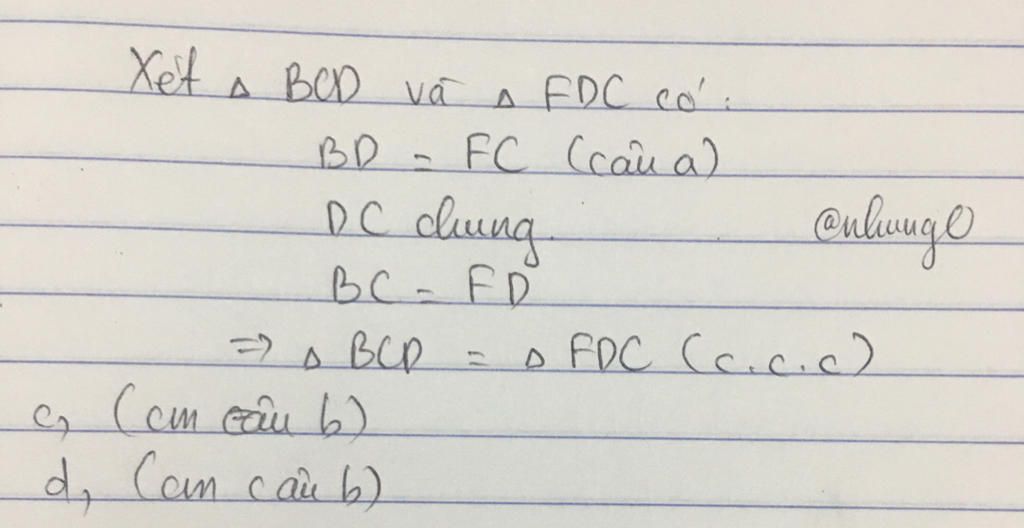 Xét Δ BCD và Δ FDC có:
BD = FC (câu a)
DC chung.
@nhungl
BC = FD
=> Δ BCD = Δ FDC (c.c.c)
c, (cm câu b)
d, (cm câu b)